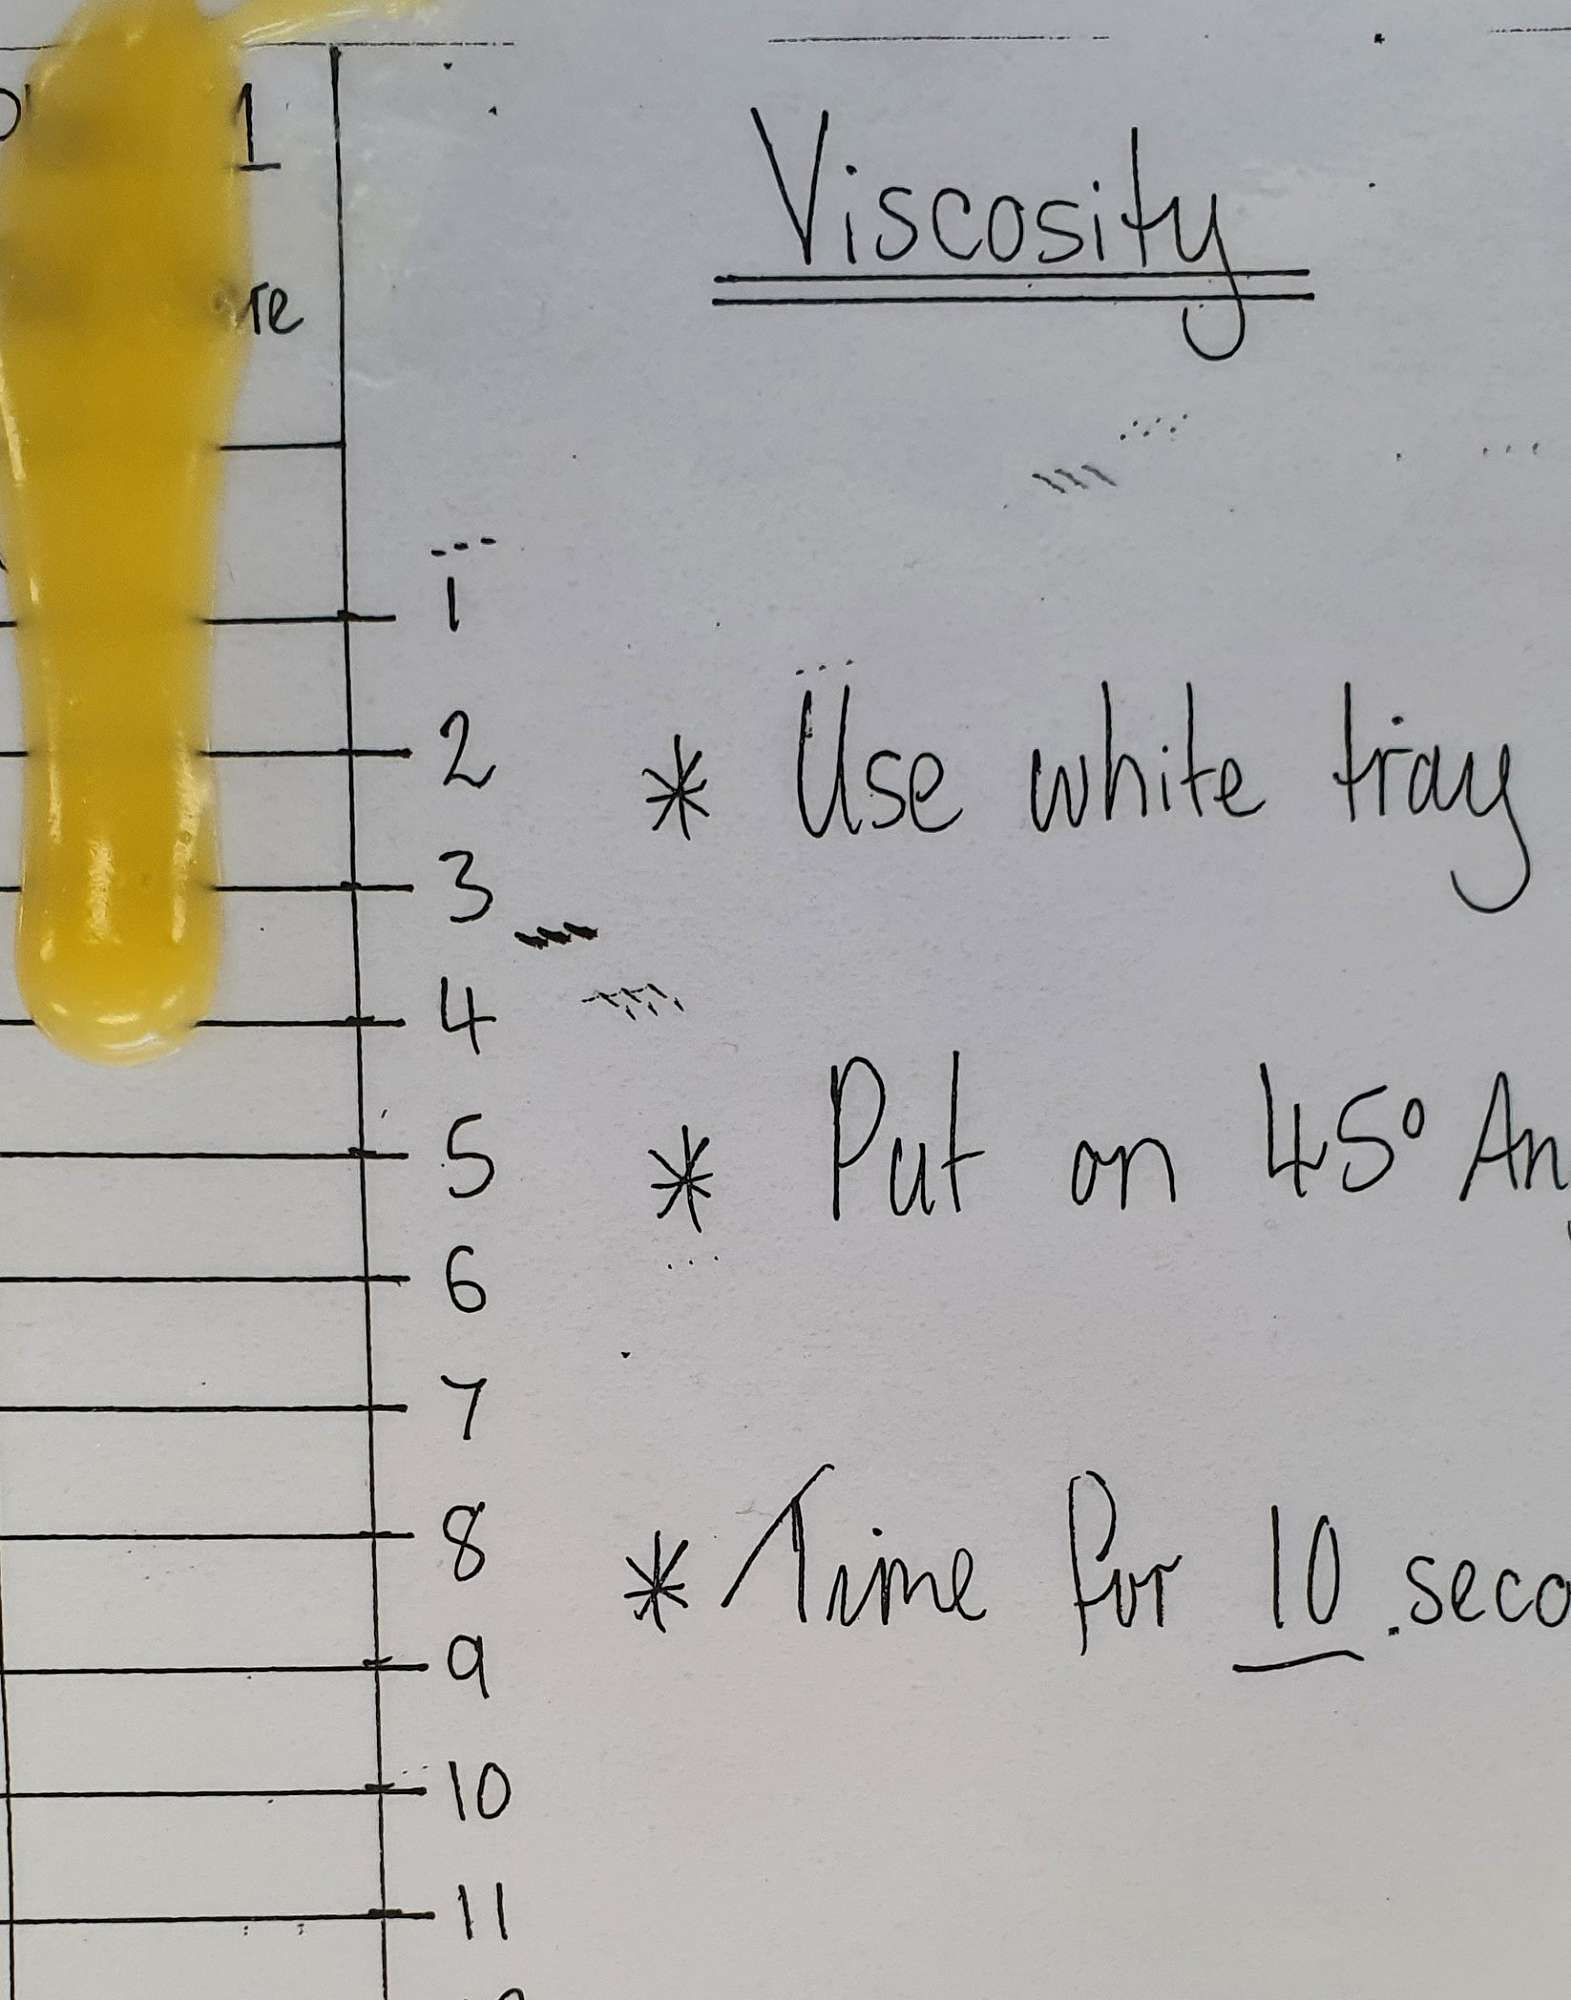 1
Viscosity
re
1
2
* Use white tray
3
4
* Put on 45° An
5
6
7
8
* Time for 10 seco
9
10
11